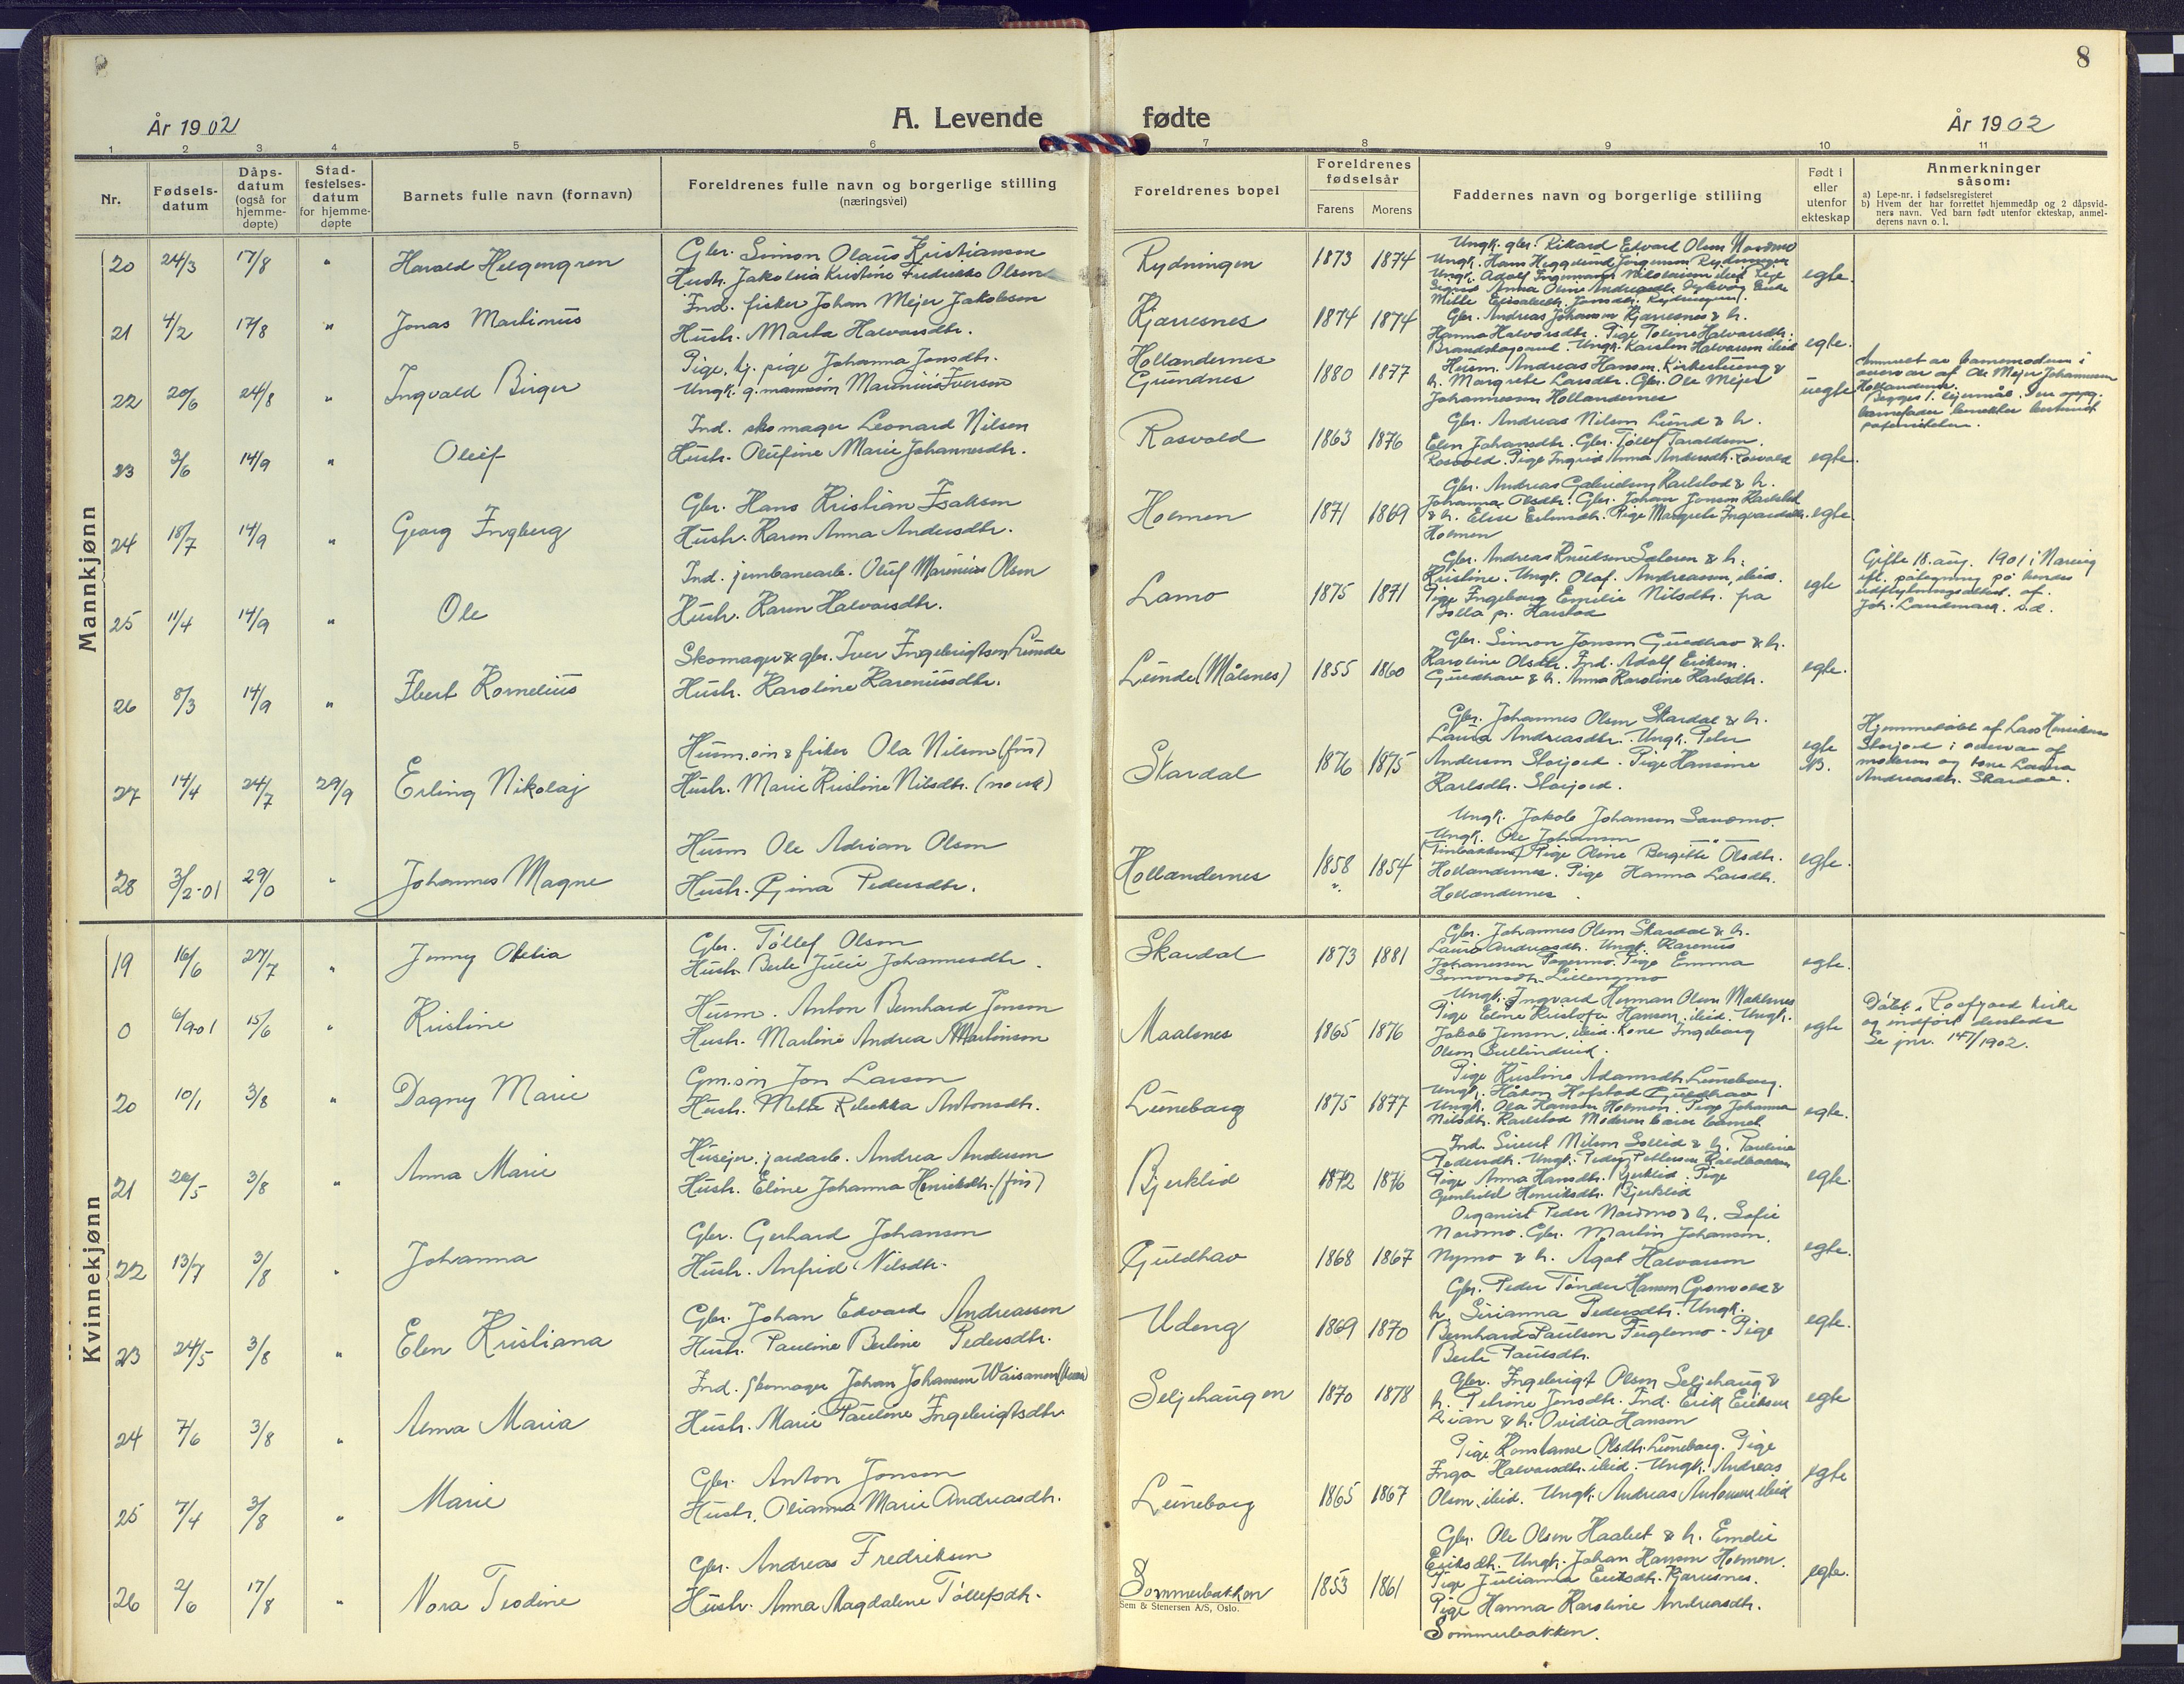 8
År 1902
A. Levende fødte
År 1902
1 2 3 4 5 6 7 8 9 10 11
Nr.
Fødsels-
datum
Dåps-
datum
(også for
hjemme-
døpte)
Stad-
festelses-
datum
for hjemme-
døpte
Barnets fulle navn (fornavn)
Foreldrenes fulle navn og borgerlige stilling
(næringsvei)
Foreldrenes bopel
Foreldrenes
fødselsår
Farens Morens
Faddernes navn og borgerlige stilling
Født i
eller
utenfor
ekteskap
Anmerkninger
såsom:
a) Løpe-nr. i fødselsregisteret
b) Hvem der har forrettet hjemmedåp og 2 dåpsvid-
ners navn. Ved barn født utenfor ekteskap, anmel-
derens navn o. l.
Mannkjønn
20 24/3 17/8 " Harald Helgengren
Gbr. Simon Olaus Kristiansen
Hustr. Jakobia Kristine Fredrikke Olsen
Rydningen 1873 1874
Ungk. gbr. Rikard Edvard Olsen Nordmo
Ungk. Hans Heggelund Jørgensen Rydningen
egte.
21 4/2 17/8 " Jonas Martinus
Ind. fisker Johan Mejer Jakobsen
Hustr. Marta Halvorsdtr.
Kjærresnes 1874 1874
Gbr. Andreas Johansen Kjærresnes & h.
Hanna Halvorsdtr. Pige Toline Halvorsdtr.
Brandskognes. Ungk. Karsten Halvorsen ibid
egte.
22 20/6 24/8 " Ingvald Birger
Pige, kj. pige Johanna Jonsdtr.
Ungk. g.mannsøn Marinius Iversen
Hollandernes
Grundnes 1880 1877
Husm. Andreas Hansen Kirkestueng &
h. Margrete Larsdtr. Gbr. Ole Mejer
Johannessen Hollandernes
uegte
Anmeldt av barnemoderen i
overvær af Ole Mejer Johannessen
Hollandernes.
Begges 1. lejermål. Den oppg.
barnefader benekter bestemt
paterniteten.
23 3/6 14/9 " Oleif
Ind. skomager Leonard Nilsen
Hustr. Olufine Marie Johannesdtr.
Rosvold 1863 1876
Gbr. Andreas Nilsen Lund & h.
Elen Johansdtr. Gbr. Tollef Taraldsen
Rosvold. Pige Ingrid Anna Andersdtr. Rosvold
egte.
24 18/7 14/9 " Georg Ingberg
Gbr. Hans Kristian Isaksen
Hustr. Karen Anna Andersdtr.
Holmen 1871 1869
Gbr. Andreas Gabrielsen Karlstad & h.
Johanna Olsdtr. Gbr. Johan Jonsen Karlstad
& h. Elise Erlensdtr. Pige Margrete Ingvardsdtr.
Holmen
egte.
25 11/4 14/9 " Ole
Ind. jernbanearb. Oluf Marinius Olsen
Hustr. Karen Halvorsdtr.
Lamo 1875 1871
Gbr. Andreas Knudsen Sæteren & h.
Kristine. Ungk. Olaf Andreassen, ibid.
Pige Ingeborg Emilie Nilsdtr. fra
Bolla p. Harstad
egte
Gifte 18. aug. 1901 i Narvig
efl. påtegning på hendes
udflytningsattest af
Joh. Landmark. s.d.
26 8/3 14/9 " Ibert Kornelius
Skomager & gbr. Iver Ingebrigtsen Lunde
Hustr. Karoline Kareniusdtr.
Lunde (Målsnes) 1855 1860
Gbr. Simon Jonsen Guldhav & h.
Karoline Olsdtr. Ind. Adolf Eriksen
Guldhav & h. Anna Karoline Karlsdtr.
egte.
27 14/4 24/7 29/9 Erling Nikolaj
Husm.søn & fisker Ola Nilsen (fin)
Hustr. Marie Kristine Nilsdtr. (norsk)
Skardal 1876 1875
Gbr. Johannes Olsen Skardal & h.
Laura Andreasdtr. Ungk. Peder
Andersen Storjord. Pige Hansine
Karlsdtr. Storjord.
egte
NB.
Hjemmedøbt af Lars Henriksen
Storjord i overvær af
moderen og kone Laura
Andreasdtr. Skardal.
28 3/2-01 29/0 " Johannes Magne
Husm Ole Adrian Olsen
Hustr. Gjina Pedersdtr.
Hollandernes 1858 1854
Ungk. Jakob Johansen Sandmo.
Ungk. Ole Johansen "
Pige Oline Bergitte Olsdtr.
Hollandernes. Pige Hanna Larsdtr.
Hollandernes.
egte.
Kvinnekjønn
19 16/6 27/7 " Jenny Otelia
Gbr. Tollef Olsen
Hustr. Berte Julie Johannesdtr.
Skardal 1873 1881
Gbr. Johannes Olsen Skardal & h.
Laura Andreasdtr. Ungk. Karenius
Johansen Pogermo. Pige Emma
Simonsdtr. Lillengmo
egte.
0 6/9-01 15/6 " Kristine
Husm. Anton Bernhard Jensen
Hustr. Martine Andrea Martinsen
Maalsnes 1865 1876
Ungk. Ingvard Herman Olsen Målsnes
Pige Eline Kristofa Hansen, ibid. Ungk.
Jakob Jensen, ibid. Kone Ingeborg
Olsen
egte
Døbt i Rosfjord kirke
og indført dersteds
Se jnr. 147/1902.
20 10/1 3/8 " Dagny Marie
Gm.søn Jon Larsen
Hustr. Mette Rebekka Antonsdtr.
Luneborg 1875 1877
Pige Kristine Adamsdtr. Luneborg.
Ungk. Håkon Hofstad Guldhav
Ungk. Ola Hansen Holmen. Pige Johanna
Nilsdtr. Karlstad Moderen barer barnet
egte.
21 26/5 3/8 " Anna Marie
Husejer, jordarb. Andrea Andersen
Hustr. Eline Johanna Henriksdtr. (fin)
Bjerklid 1872 1876
Ind. Sivert Nilsen Sollid & h. Pauline
Pedersdtr. Ungk. Peder Pettersen Kaldbakken
Pige Anna Hansdtr. Bjerklid. Pige
Gunhild Henriksdtr. Bjerklid
egte.
22 13/7 3/8 " Johanna
Gbr. Gerhard Johansen
Hustr. Anfrid Nilsdtr.
Guldhav 1868 1867
Organist Peder Nordmo & h. Sofie
Nordmo. Gbr. Martin Johansen,
Nymo & h. Agat Halvorsen
egte.
23 24/5 3/8 " Elen Kristiana
Gbr. Johan Edvard Andreassen
Hustr. Pauline Berline Pedersdtr.
Udeng 1869 1870
Gbr. Peder Tønder Hansen Grønvold &
h. Sirianna Pedersdtr. Ungk.
Bernhard Paulsen Fuglemo - Pige
Berte Paulsdtr.
egte.
24 7/6 3/8 " Alma Maria
Ind. skomager Johan Johansen Waisanen (kvæn)
Hustr. Marie Pauline Ingebrigtsdtr.
Seljehaugen 1870 1878
Gbr. Ingebrigt Olsen Seljehaug &
h. Petrine Jonsdtr. Ind. Erik Eriksen
Lian & h. Ovidia Hansen
egte
25 7/4 3/8 " Marie
Gbr. Anton Jonsen
Hustr. Olianna Marie Andreasdtr.
Luneborg 1865 1867
Pige Konstanse Olsdtr. Luneborg. Pige
Inga Halvorsdtr. ibid. Ungk. Andreas
Olsen, ibid. Ungk. Andreas Antonsen ibid
egte
26 2/6 17/8 " Nora Teodine
Gbr. Andreas Fredriksen
Hustr. Anna Magdalene Tollefsdtr.
Sommerbakken 1853 1861
Gbr. Ole Olsen Haalet & h. Emelie
Eriksdtr. Ungk. Johan Hansen Holmen.
Pige Julianna Eriksdtr. Kjærresnes.
Pige Hanna Karoline Andreasdtr.
Sommerbakken.
egte.
Sem & Stenersen A/S, Oslo.